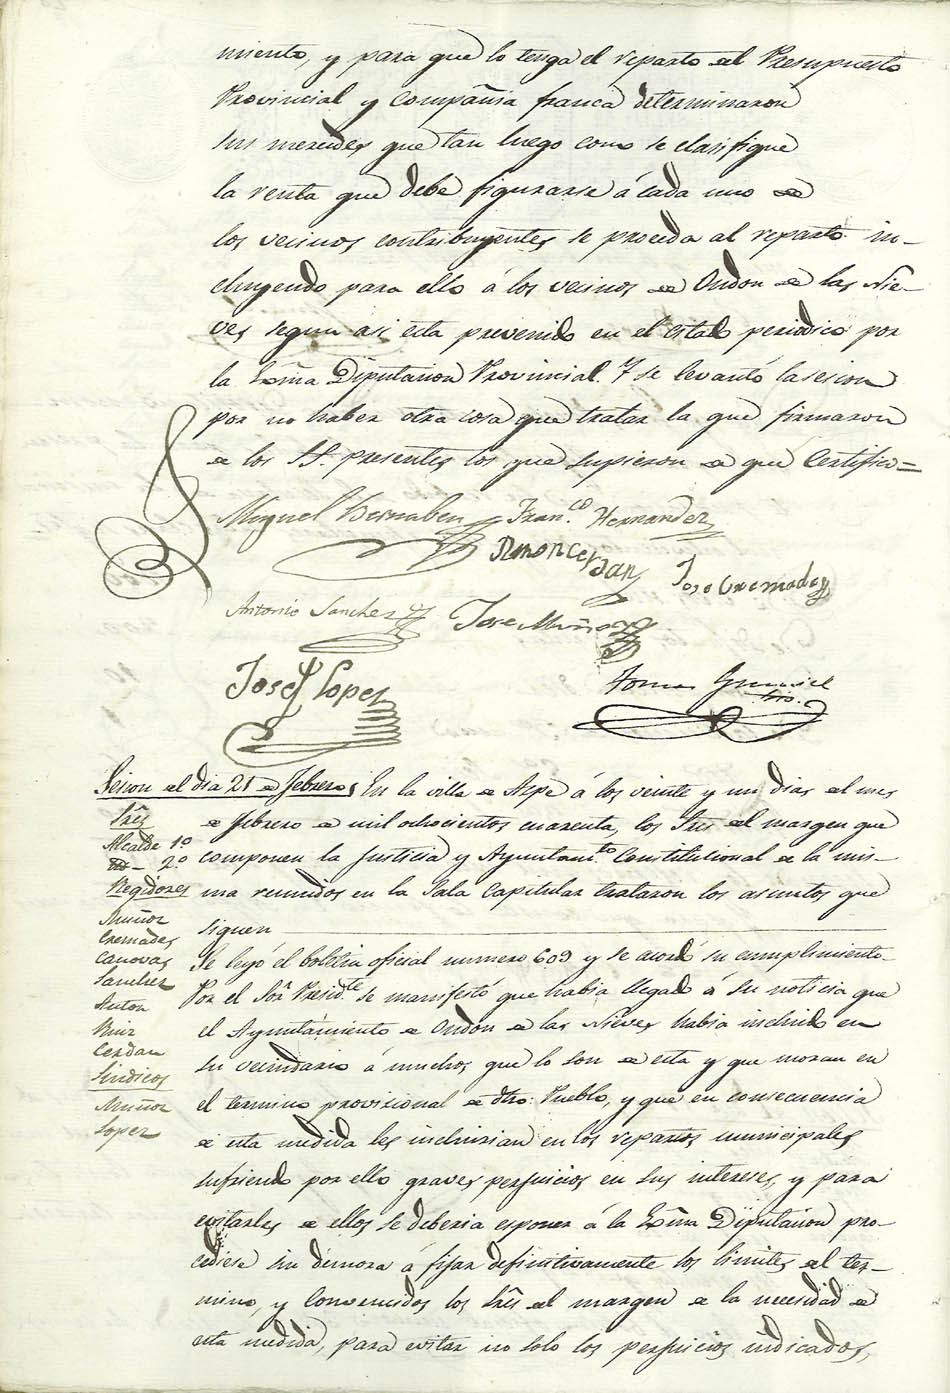 miento, y para que lo tenga el reparto del Presupuesto
Provincial y Compañia franca determinaron
sus mercedes que tan luego como se clasifique
la renta que debe figurarse á cada uno de
los vecinos contribuyentes se proceda al reparto in-
cluyendo para ello á los vecinos de Ondon de las Nie-
ves segun asi esta prevenido en el estado periodico por
la Exma Diputacion Provincial. Y se levantó la sesion
por no haber otra cosa que tratar la que firmaron
de los SS. presentes los que supieron de que Certifico=
Miguel Bernabeu Fran.co Hernandez
Jose Cremades
Antonio Sanchez Jose Muñoz
Josef Lopez
Tomas
Srio.
Sesion del dia 21 de Febrero
En la villa de Aspe á los veinte y un dias del mes
de Febrero de mil ochocientos cuarenta, los Sres del margen que
componen la Justicia y Ayuntam.to Constitucional de la mis-
ma reunidos en la Sala Capitular trataron los asuntos que
siguen
Sres
Alcalde 1º
2.º
Regidores
Muñoz
Cremades
Canovas
Sanchez
Anton
Ruiz
Cerdan
Sindicos
Muñoz
Lopez
Se leyó el boletin oficial numero 609 y se acordó su cumplimiento.
Por el Sor. Presid.te se manifestó que habia llegado á su noticia que
el Ayuntamiento de Ondon de las Nieves habia incluido en
su vecindario á muchos que lo son de esta y que moran en
el termino provisional de dho. Pueblo, y que en consecuencia
de esta medida les incluirian en los repartos municipales
sufriendo por ello graves perjuicios en sus intereses, y para
evitarles de ellos se deberia esponer á la Exma Diputacion pro-
cediese sin demora á fijar definitivamente los limites del ter-
mino, y Convencidos los Sres del margen de la necesidad de
esta medida, para evitar no solo los perjuicios indicados,